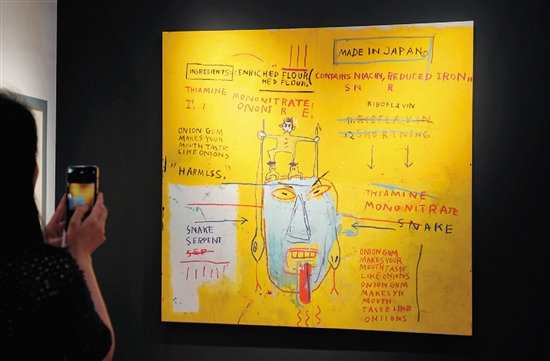 MADE IN JAPAN©
INGREDIENTS: ENRICHED FLOUR(
HED FLOUR,
CONTAINS NIACIN, REDUCED IRON,
S N R
THIAMINE
MONONITRATE,
ONONI R E,
RIBOFLAVIN
1. RIBOFLAVIN
2 SHORTNING
ONION GUM
MAKES YOUR
MOUTH TASTE
LIKE ONIONS
"HARMLSS."
THIAMINE
MONONITRATE
SNAKE
SNAKE
SERPENT
SEP
ONION GUM
MAKES YOUR
MOUTH TASTE
LIKE ONIONS
ONION GUM
MAKES YR
MOUTH
TASTE LIKE
ONIIONS